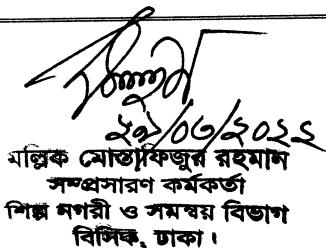 ২৯/০৩/২০২২
মল্লিক মোস্তাফিজুর রহমান
সম্প্রসারণ কর্মকর্তা
শিল্প নগরী ও সমন্বয় বিভাগ
বিসিক, ঢাকা।